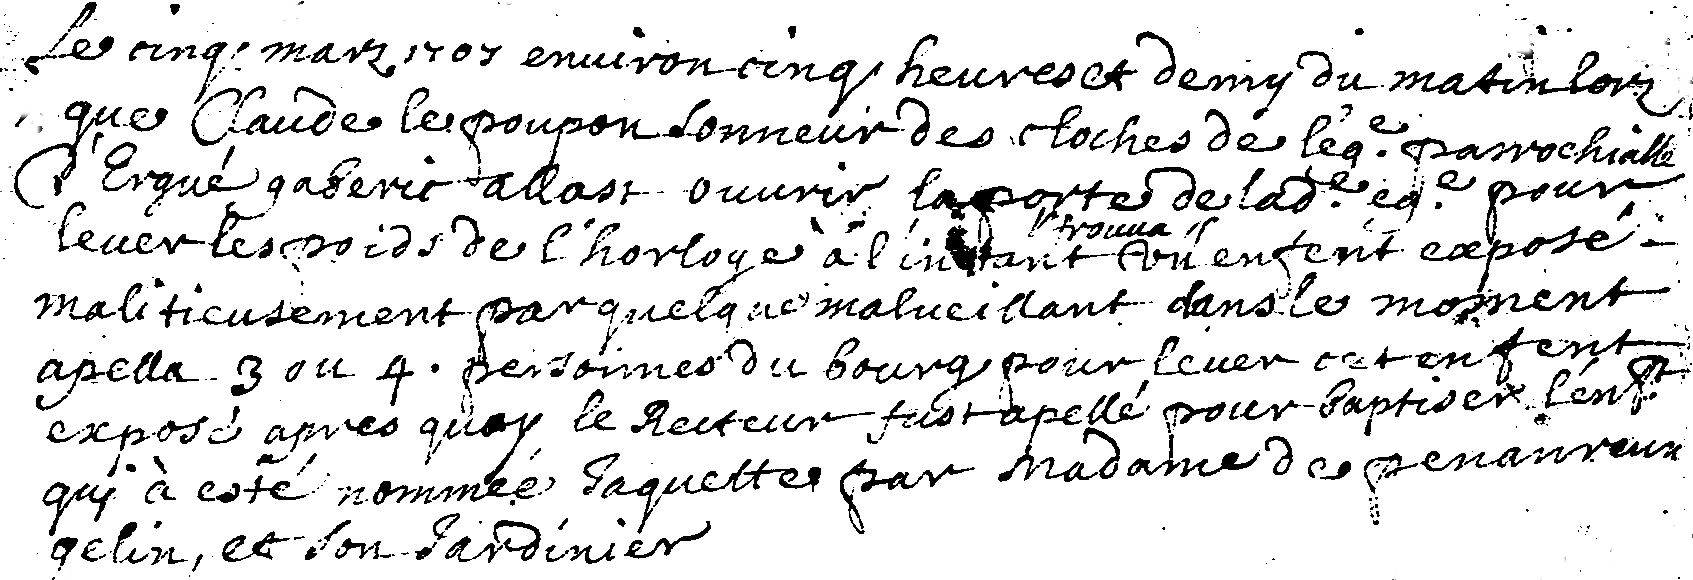 Le cinq. marz 1707 environ cinq heures et demy du matin lorz
que Claude le poupon sonneur des cloches de l'eg.e parrochialle
d'Ergué gaberic allast ouvrir la porte de lad.e eg.e pour
lever les poids de l'horloge à l'instant trouva un enfent exposé
malitieusement par quelque malveillant dans le moment
apella 3 ou 4. personnes du bourg pour lever cet enfent
exposé apres quoy le Recteur fust apellé pour baptiser l'enf.t
qui à esté nommée Jaquette par Madame de penanreun
gelin, et son Jardinier